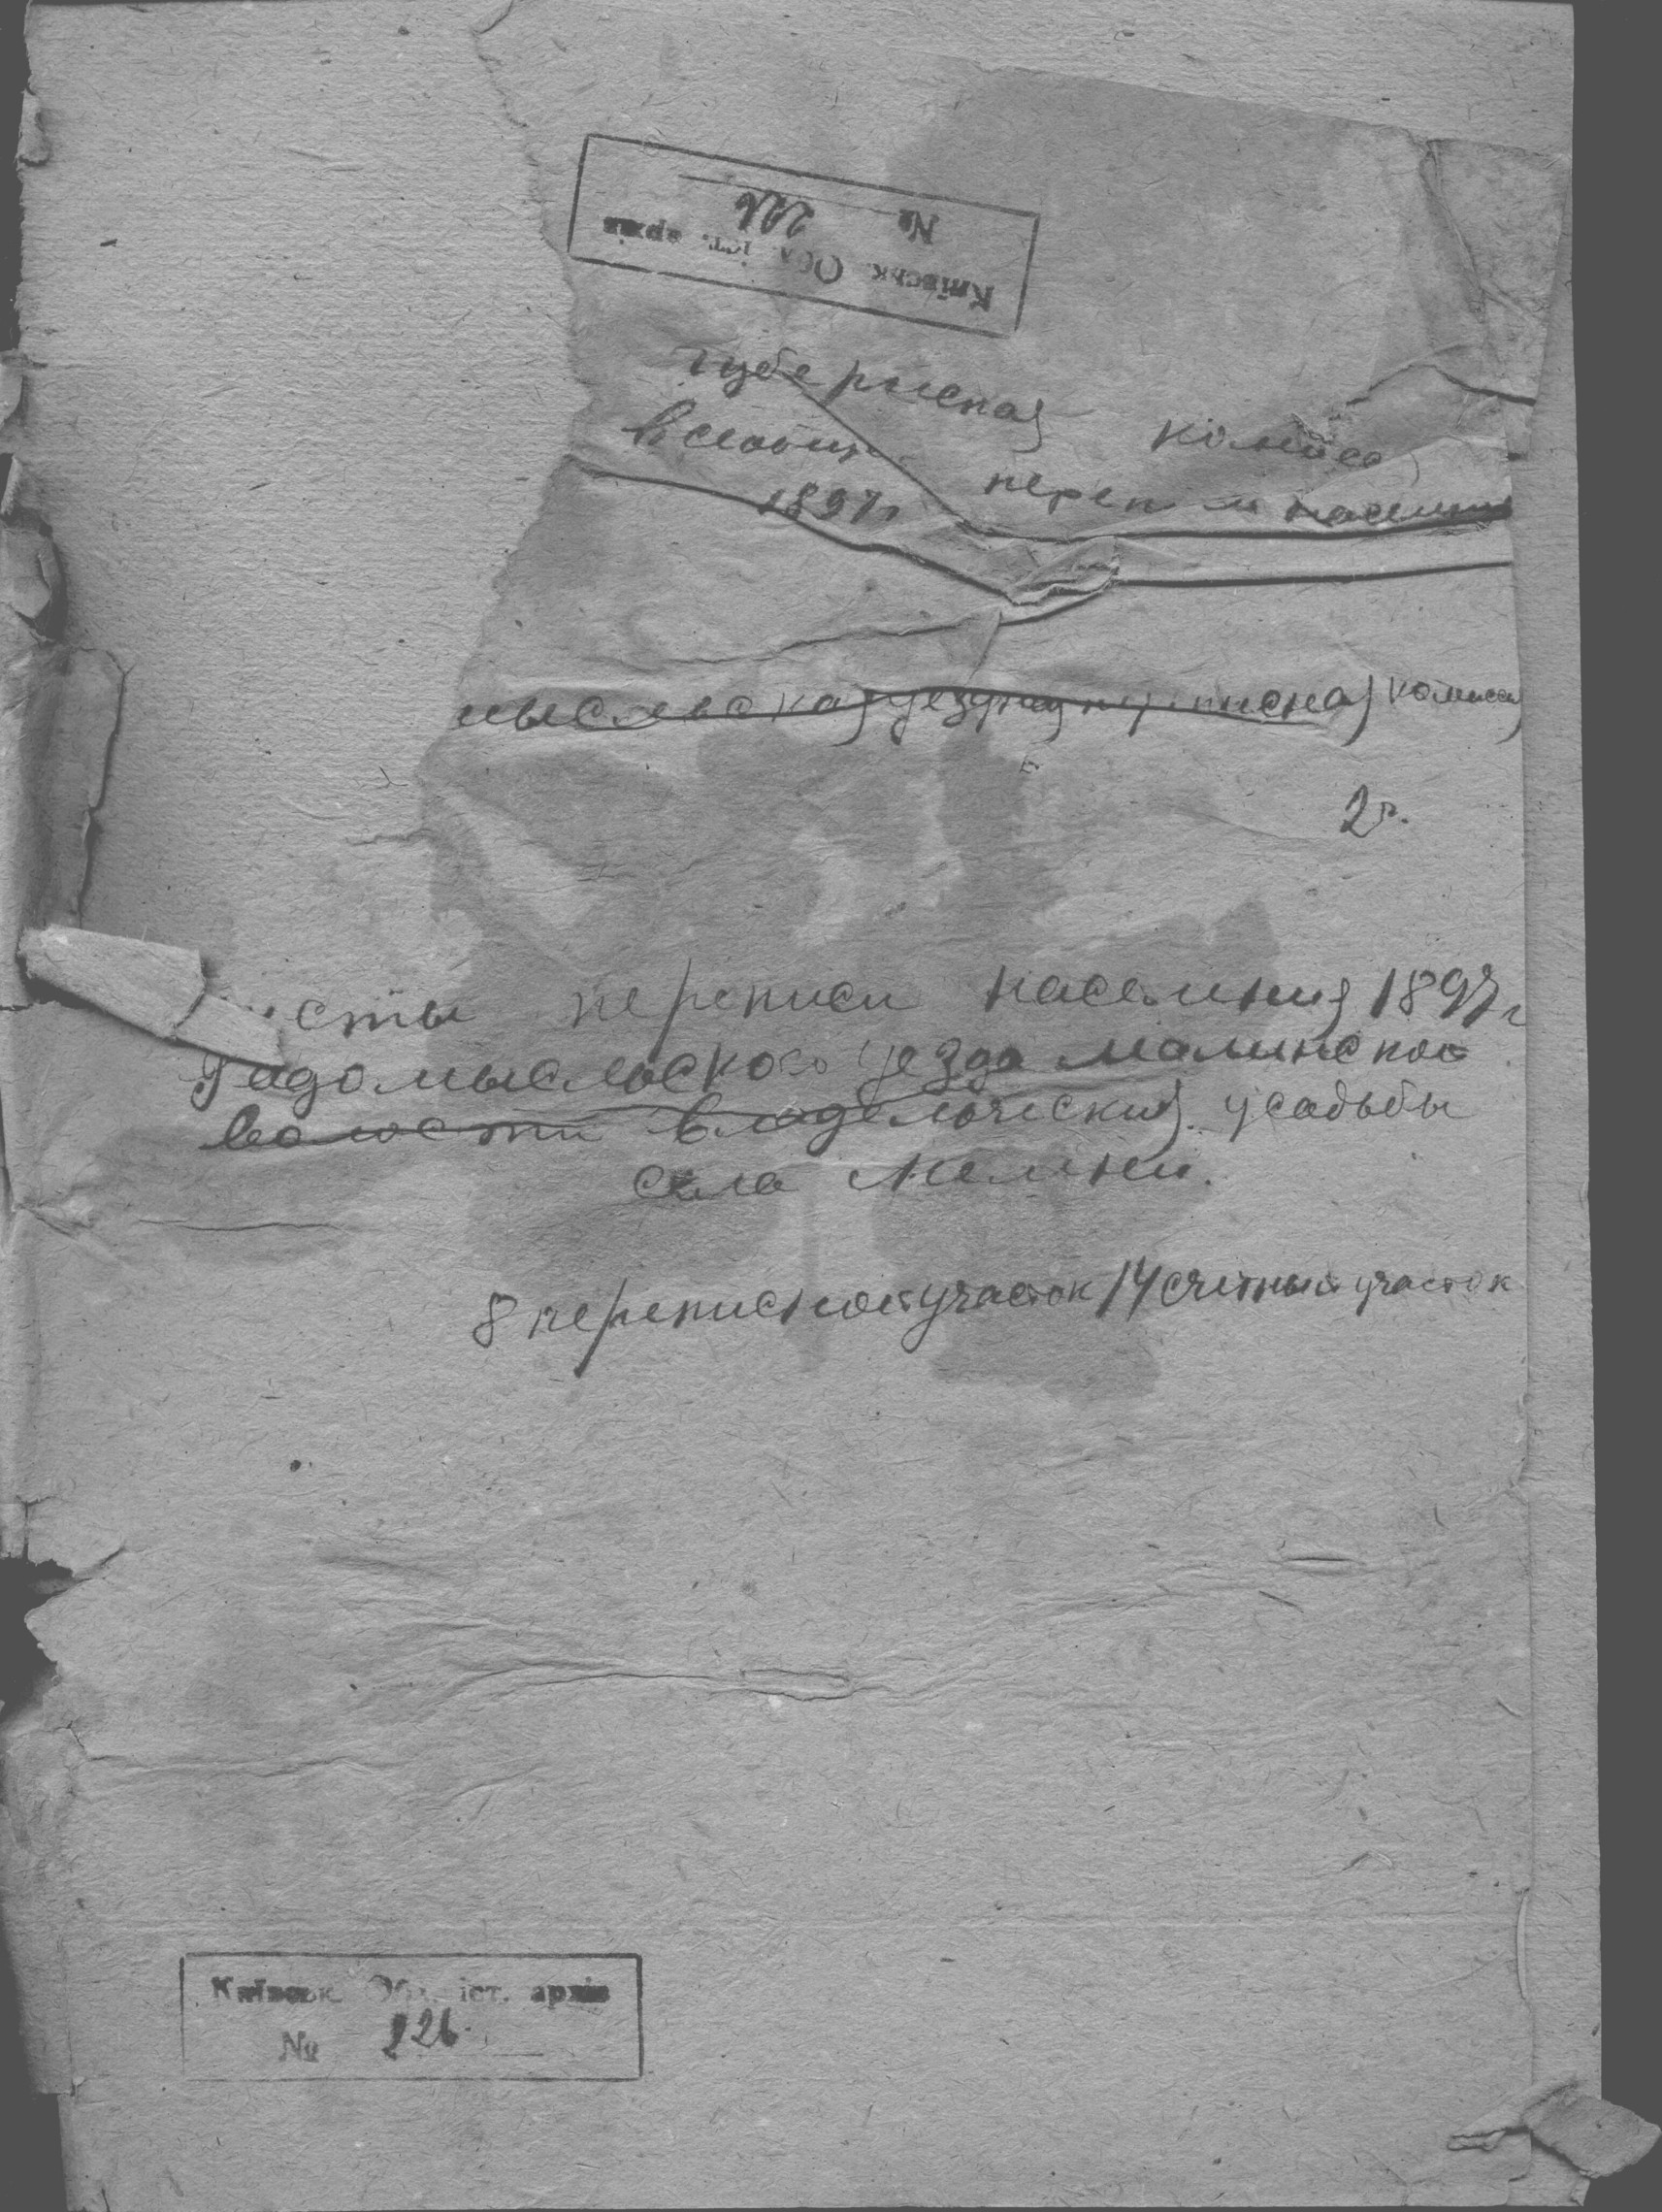 Київськ. Обл. іст. архів
№ 226
губернская комисс
Всеобщ. переп и населения
1897 г
мысльская уездная переписная комисси
2 г.
исты переписи населения 1897 г
Радомысльского уезда Малинской
волости владельческия усадьбы
села
8 переписной участок 14 счетный участок
Київськ. Обл. іст. архів
№ 226